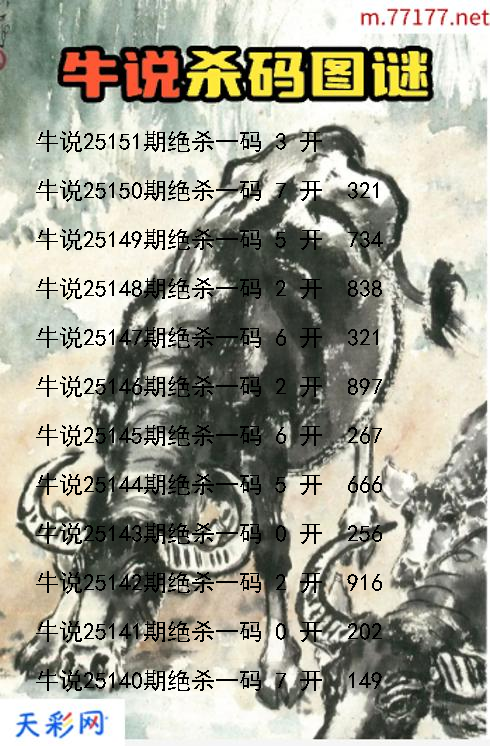 m.77177.net
牛说杀码图谜
牛说25151期绝杀一码 3 开
牛说25150期绝杀一码 7 开 321
牛说25149期绝杀一码 5 开 734
牛说25148期绝杀一码 2 开 838
牛说25147期绝杀一码 6 开 321
牛说25146期绝杀一码 2 开 897
牛说25145期绝杀一码 6 开 267
牛说25144期绝杀一码 5 开 666
牛说25143期绝杀一码 0 开 256
牛说25142期绝杀一码 2 开 916
牛说25141期绝杀一码 0 开 202
牛说25140期绝杀一码 7 开 149
天彩网